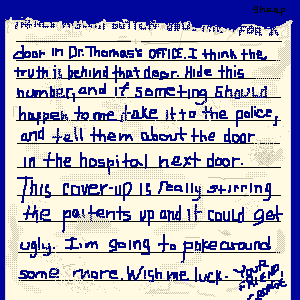 door in Dr. Thomas's OFFICE. I think the
truth is behind that door. Hide this
number, and if someting should
happen to me take it to the police,
and tell them about the door
in the hospital next door.
This cover-up is really stirring
the paitents up and it could get
ugly. I.m going to poke around
some more. Wish me luck. YOUR
FRIEND